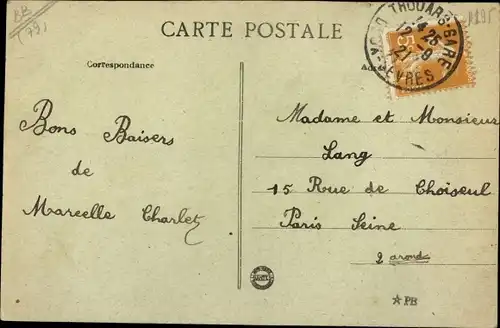 BB
(79)
CARTE POSTALE
Correspondance
THOUARS-GARE
SEVRES
Bons Baisers
de
Marcelle Charlet
Madame et Monsieur
Lang
15 Rue de Choiseul
Paris Seine
2 arond
★PB